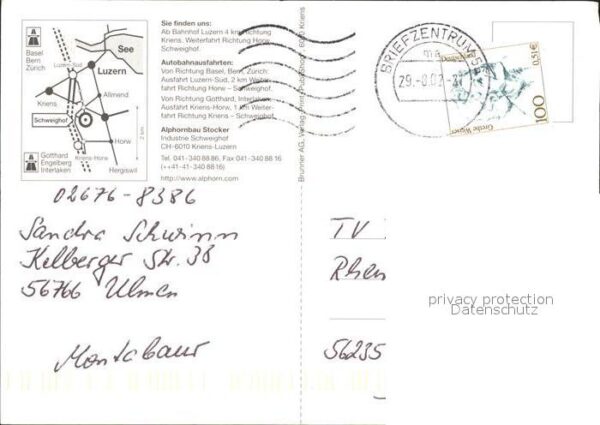 Basel
Bern
Zürich
See
Luzern-Süd
Luzern
Allmend
Kriens
Schweighof
2 km
Horw
Kriens-Horw
Gotthard
Engelberg
Interlaken
Hergiswil
Sie finden uns:
Ab Bahnhof Luzern 4 km Richtung
Kriens. Weiterfahrt Richtung Horw,
Schweighof.
Autobahnausfahrten:
Von Richtung Basel, Bern, Zürich:
Ausfahrt Luzern-Süd, 2 km Weiter-
fahrt Richtung Horw – Schweighof.
Von Richtung Gotthard, Interlaken:
Ausfahrt Kriens-Horw, 1 km Weiter-
fahrt Richtung Kriens – Schweighof.
Alphornbau Stocker
Industrie Schweighof
CH-6010 Kriens-Luzern
Tel. 041-340 88 86, Fax 041-340 88 16
(++41-41-340 88 16)
http://www.alphorn.com
Brunner AG, 6010 Kriens
BRIEFZENTRUM
0,51€
100
02676-8386
Sandra Schwinn
Kelberger Str. 38
56766 Ulmen
Montabaur
TV
Rhen
56235
privacy protection
Datenschutz